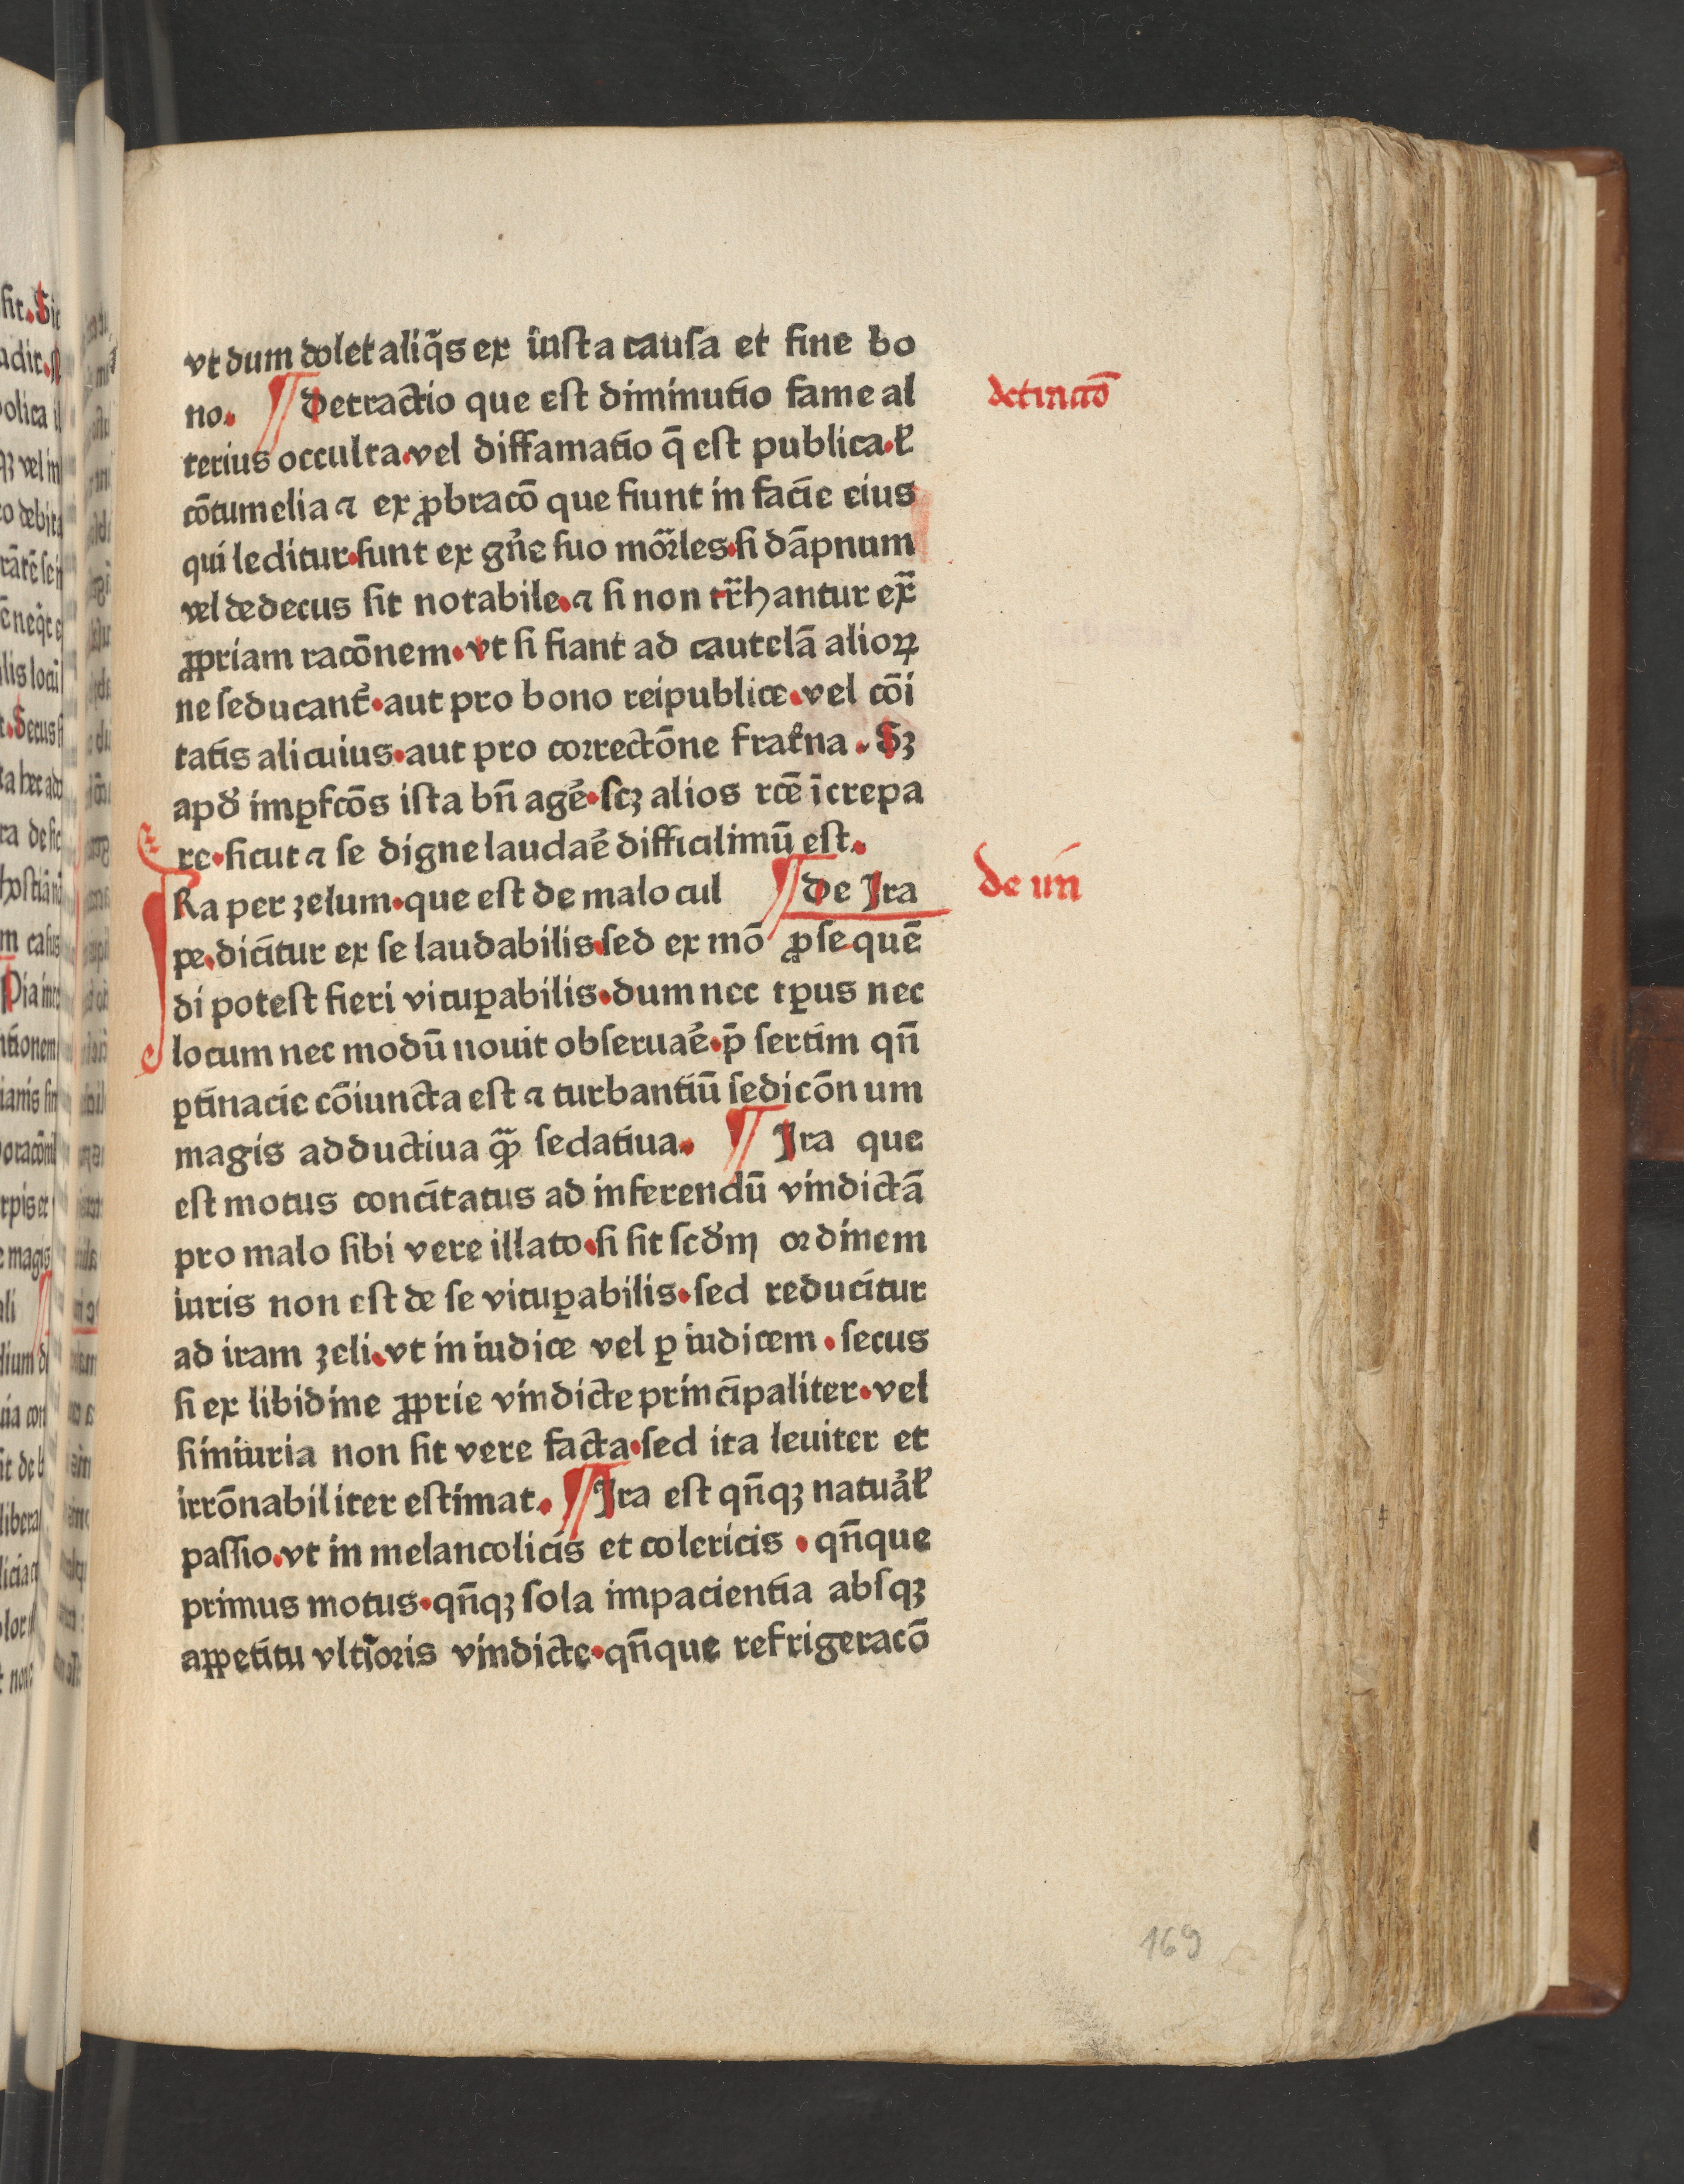 vt dum dolet aliq̄s ex iusta causa et fine bo
no. ¶ Detractio que est diminutio fame al
terius occulta.vel diffamatio q̄ est publica.ł
cōtumelia ⁊ ex ꝓbracō que fiunt in facie eius
qui leditur.sunt ex gn̄e suo mōrles.si dāpnum
vel dedecus sit notabile.⁊ si non tr̄hantur ex̄
ꝓpriam racōnem.vt si fiant ad cautelā alioꝝ
ne seducant̄.aut pro bono reipublice.vel cōi
tatis alicuius.aut pro correctōne frat̄na. Sꝫ
apđ imꝑfcōs ista bn̄ agē.scꝫ alios rcē īcrepa
re.sicut ⁊ se digne laudaē difficilimū est.
IRa per zelum.que est de malo cul ¶ De Ira
pe.dicitur ex se laudabilis.sed ex mō ꝓsequē
di potest fieri vituꝑabilis.dum nec tꝑus nec
locum nec modū nouit obseruaē.p̄ sertim qn̄
ꝑtinacie cōiuncta est ⁊ turbantiū sedicōn um
magis adductiua qͣꝫ sedatiua. ¶ Ira que
est motus concitatus ad inferendū vindictā
pro malo sibi vere illato.si sit scđm ordinem
iuris non est de se vituꝑabilis.sed reducitur
ad iram zeli.vt in iudice vel ꝑ iudicem.secus
si ex libidine ꝓprie vindicte principaliter.vel
si iniuria non sit vere facta.sed ita leuiter et
irrōnabiliter estimat. ¶ Ira est qn̄qꝫ natuāł
passio.vt in melancolicis et colericis.qn̄que
primus motus.qn̄qꝫ sola impacientia absqꝫ
appetitu vltīoris vindicte.qn̄que refrigeracō
169